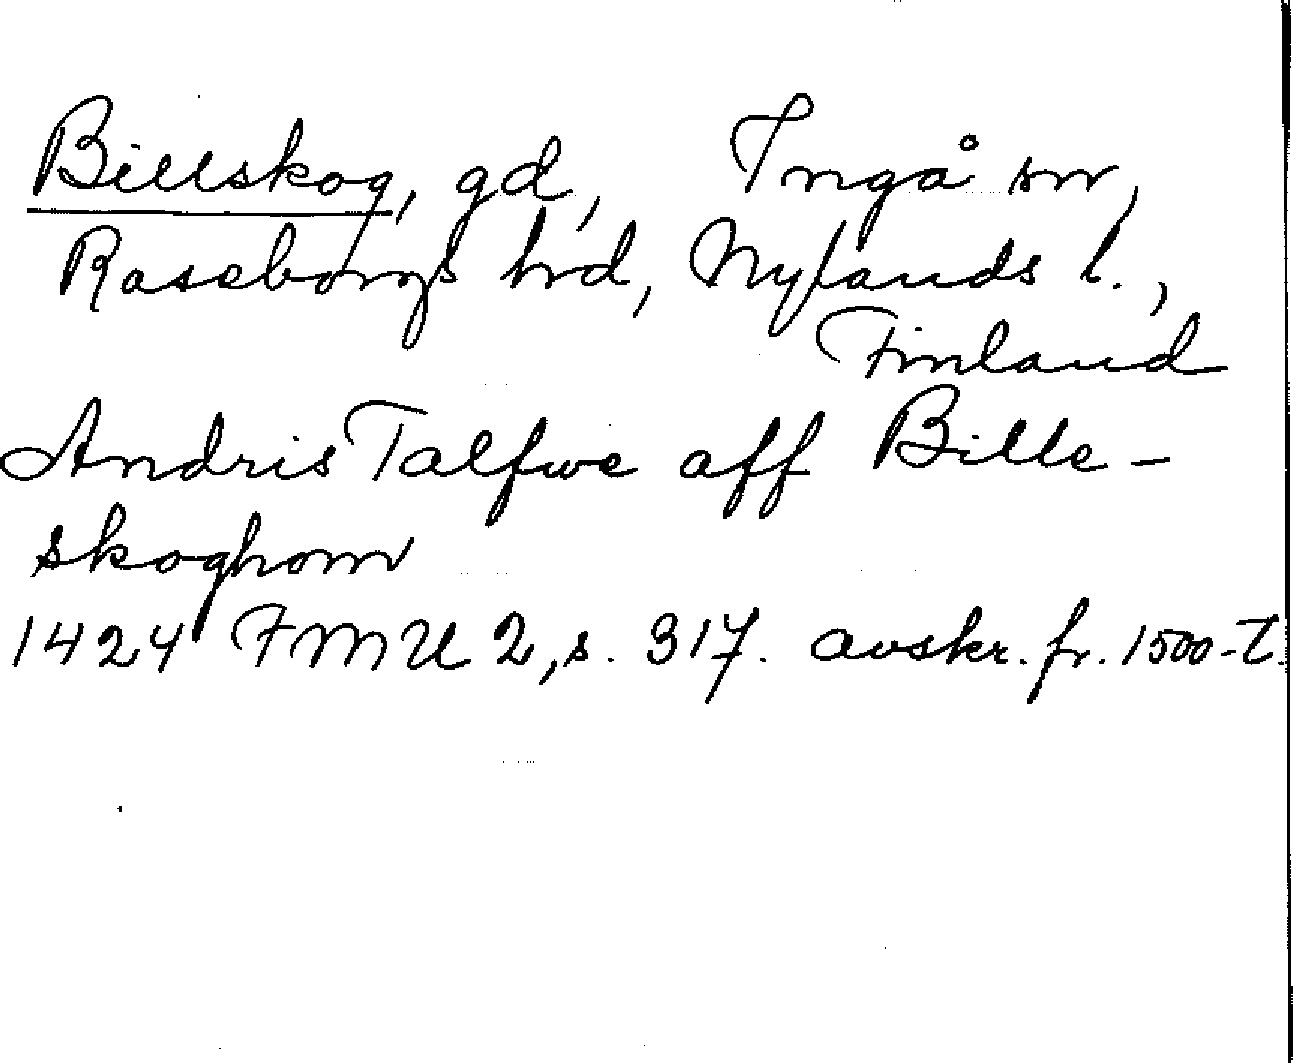 Billskog, gd, Ingå sn,
Raseborgs hrd, Nylands l.,
Finland
Andris Talfwe aff Bille-
skoghom
1424 FMU 2, s. 317. avskr. fr. 1500-t.